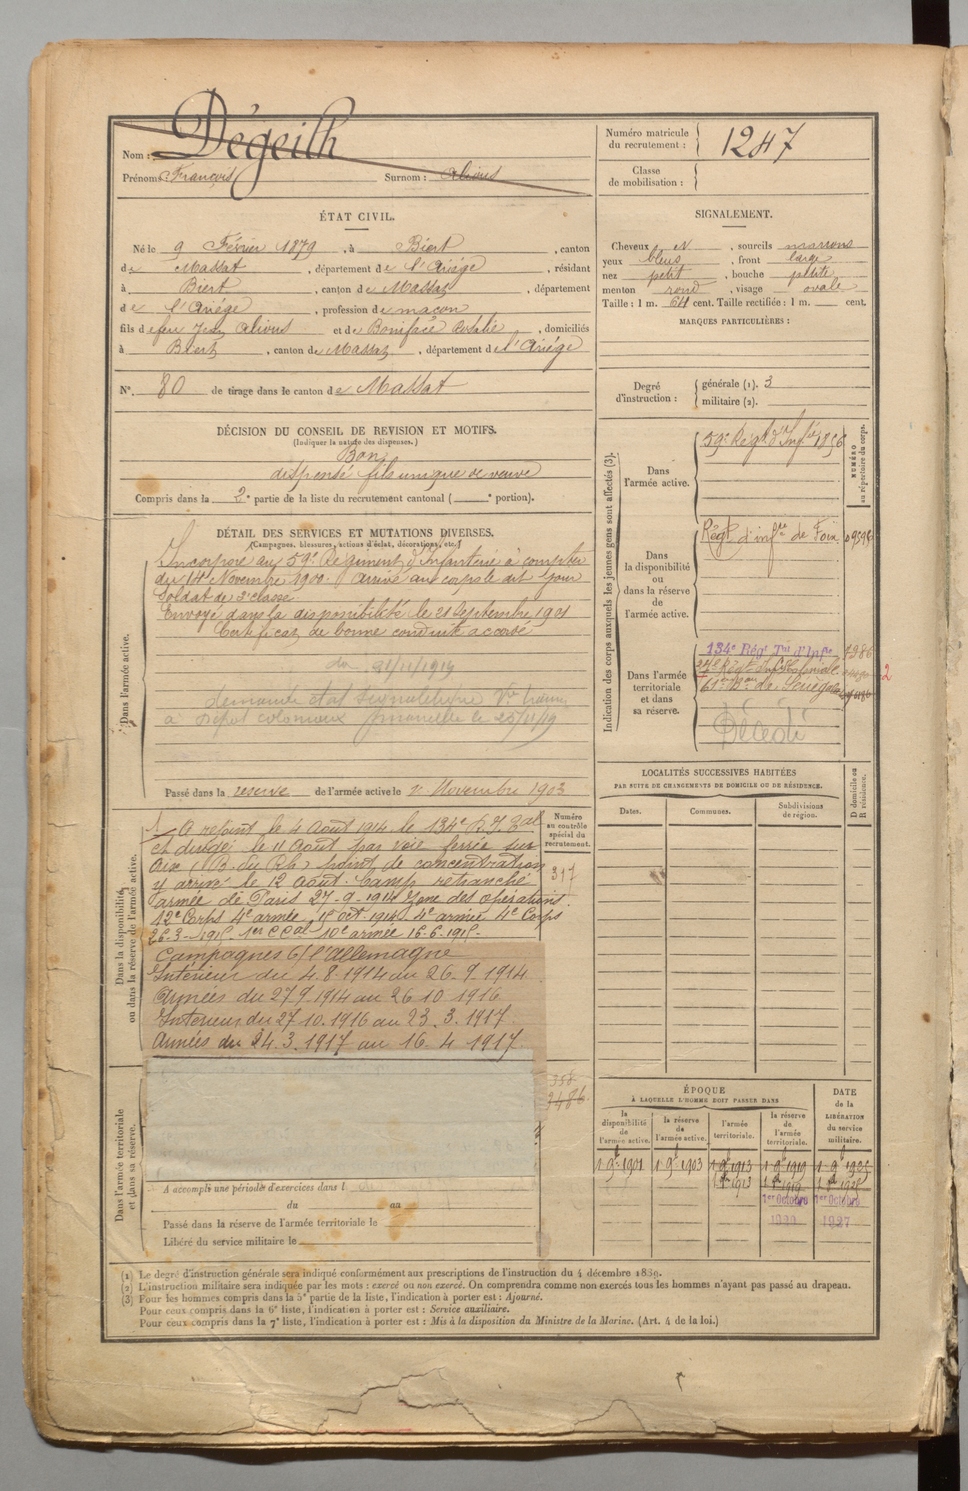 Nom : Dégeilh
Prénoms : François Surnom : Alious
ÉTAT CIVIL.
Né le 9 Février 1879, à Biert, canton
de Massat, département de l'Ariége, résidant
à Biert, canton de Massat, département
de l'Ariége, profession de maçon
fils de feu Jean Alious et de Boniface Rosalie, domiciliés
à Biert, canton de Massat, département de l'Ariége
N°. 80 de tirage dans le canton de Massat
DÉCISION DU CONSEIL DE REVISION ET MOTIFS.
(Indiquer la nature des dispenses.)
Bon
dispensé fils unique de veuve
Compris dans la 2e partie de la liste du recrutement cantonal ( e portion).
DÉTAIL DES SERVICES ET MUTATIONS DIVERSES.
(Campagnes, blessures, actions d'éclat, décorations, etc.)
Dans l'armée active.
Incorporé au 59e Régiment d'Infanterie à compter
du 14 Novembre 1900. Arrivé au corps le dit jour
Soldat de 2e classe
Envoyé dans la disponibilité le 21 Septembre 1901
Certificat de bonne conduite accordé
du 21/11/1919
demande état signalétique
à Dépôt coloniaux le 25/11/19
Passé dans la reserve de l'armée active le 1er Novembre 1903
Dans la disponibilité
ou dans la réserve de l'armée active.
A rejoint le 4 Août 1914 le 134e R.I. Tal
et dirigé le 11 Août par voie ferrée sur
Aix (B. du Rh.) point de concentration
y arrivé le 12 Août. Camp retranché
armée de Paris 27-9-1914 Zone des opérations
12e Corps 4e armée 15 oct. 1914 4e armée 4e Corps
26-3-1915- 1er C. Cal 10e armée 16-6-1915-
Campagnes c/ l'Allemagne
Intérieur du 4.8.1914 au 26.9.1914
Armées du 27 9 1914 au 26 10 1916
Intérieur du 27 10. 1916 au 23. 3. 1917
Armées du 24. 3. 1917 au 16. 4 1917
Numéro
au contrôle
spécial du
recrutement.
317
358
2486
Dans l'armée territoriale
et dans sa réserve.
A accompli une période d'exercices dans l
du au
Passé dans la réserve de l'armée territoriale le
Libéré du service militaire le
Numéro matricule
du recrutement : 1247
Classe
de mobilisation :
SIGNALEMENT.
Cheveux N, sourcils marrons
yeux bleus, front large
nez petit, bouche petite
menton rond, visage ovale
Taille : 1 m. 64 cent. Taille rectifiée : 1 m. cent.
MARQUES PARTICULIÈRES :
Degré
d'instruction :
générale (1). 3
militaire (2).
Indication des corps auxquels les jeunes gens sont affectés (3).
NUMÉRO
au répertoire du corps.
Dans
l'armée active.
59e Régt d'Infie 1856
Dans
la disponibilité
ou
dans la réserve
de
l'armée active.
Régt d'infie de Foix
Dans l'armée
territoriale
et dans
sa réserve.
134e Régt Tal d'Infie 1286
24e Régt Inf Coloniale
61e Bon de Sénégalais
2
Décédé
LOCALITÉS SUCCESSIVES HABITÉES
PAR SUITE DE CHANGEMENTS DE DOMICILE OU DE RÉSIDENCE.
D domicile ou
R résidence.
Dates. Communes. Subdivisions
de région.
ÉPOQUE
À LAQUELLE L'HOMME DOIT PASSER DANS
DATE
de la
LIBÉRATION
du service
militaire.
la
disponibilité
de
l'armée active.
la réserve
de
l'armée active.
l'armée
territoriale.
la réserve
de
l'armée
territoriale.
1 9bre 1901 1 9bre 1903 1 9bre 1913 1 9bre 1919 1 9bre 1925
1er Octobre 1er Octobre
1927
(1) Le degré d'instruction générale sera indiqué conformément aux prescriptions de l'instruction du 4 décembre 1889.
(2) L'instruction militaire sera indiquée par les mots : exercé ou non exercé. On comprendra comme non exercés tous les hommes n'ayant pas passé au drapeau.
(3) Pour les hommes compris dans la 5e partie de la liste, l'indication à porter est : Ajourné.
Pour ceux compris dans la 6e liste, l'indication à porter est : Service auxiliaire.
Pour ceux compris dans la 7e liste, l'indication à porter est : Mis à la disposition du Ministre de la Marine. (Art. 4 de la loi.)